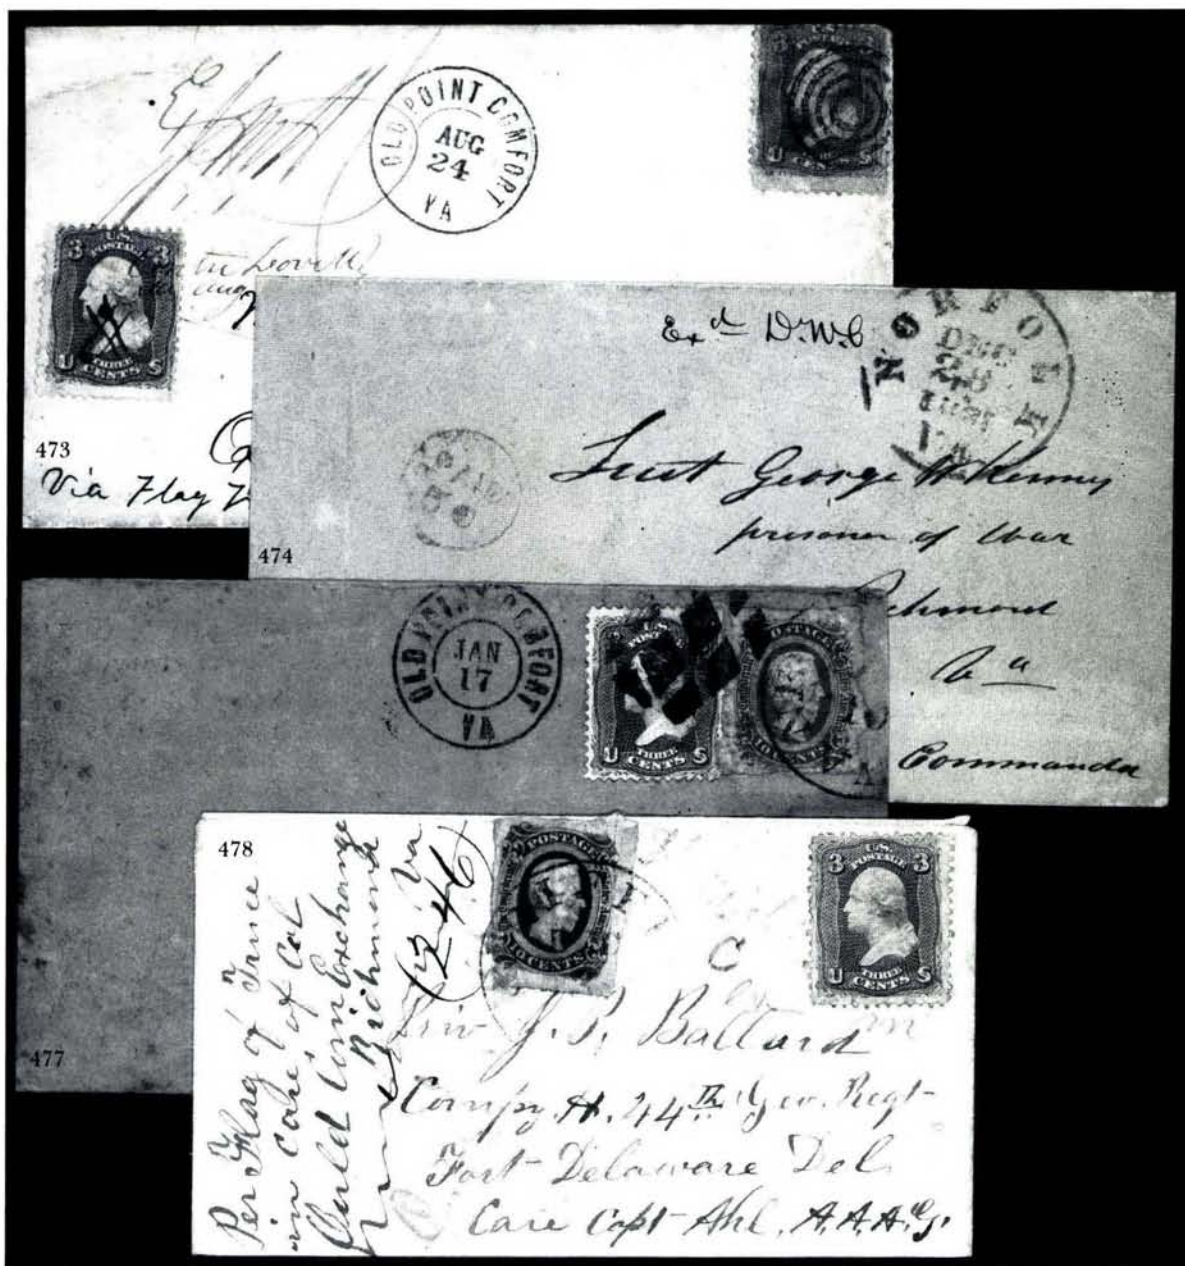 OLD POINT COMFORT
AUG
24
VA
3 U.S. POSTAGE 3
U THREE CENTS S
3 U.S. POSTAGE 3
U THREE CENTS S
473
Via Flag
Exd D.W.C
NORFOLK
DEC
28
Va
Lieut George H Kenney
prisoner of War
Richmond
Va
Commander
474
OLD POINT COMFORT
JAN
17
VA
U.S. POSTAGE
U THREE CENTS S
POSTAGE
10 CENTS
477
478
Per Flag of Truce
in care of Col
Ould Com Exchange
Richmond
Va
(246)
POSTAGE
TEN
10 CENTS
3 U.S. POSTAGE 3
U THREE CENTS S
Priv J. P. Ballard
Compy. H. 44th Geo. Regt
Fort Delaware Del.
Care Capt Ahl. A.A.A.G.